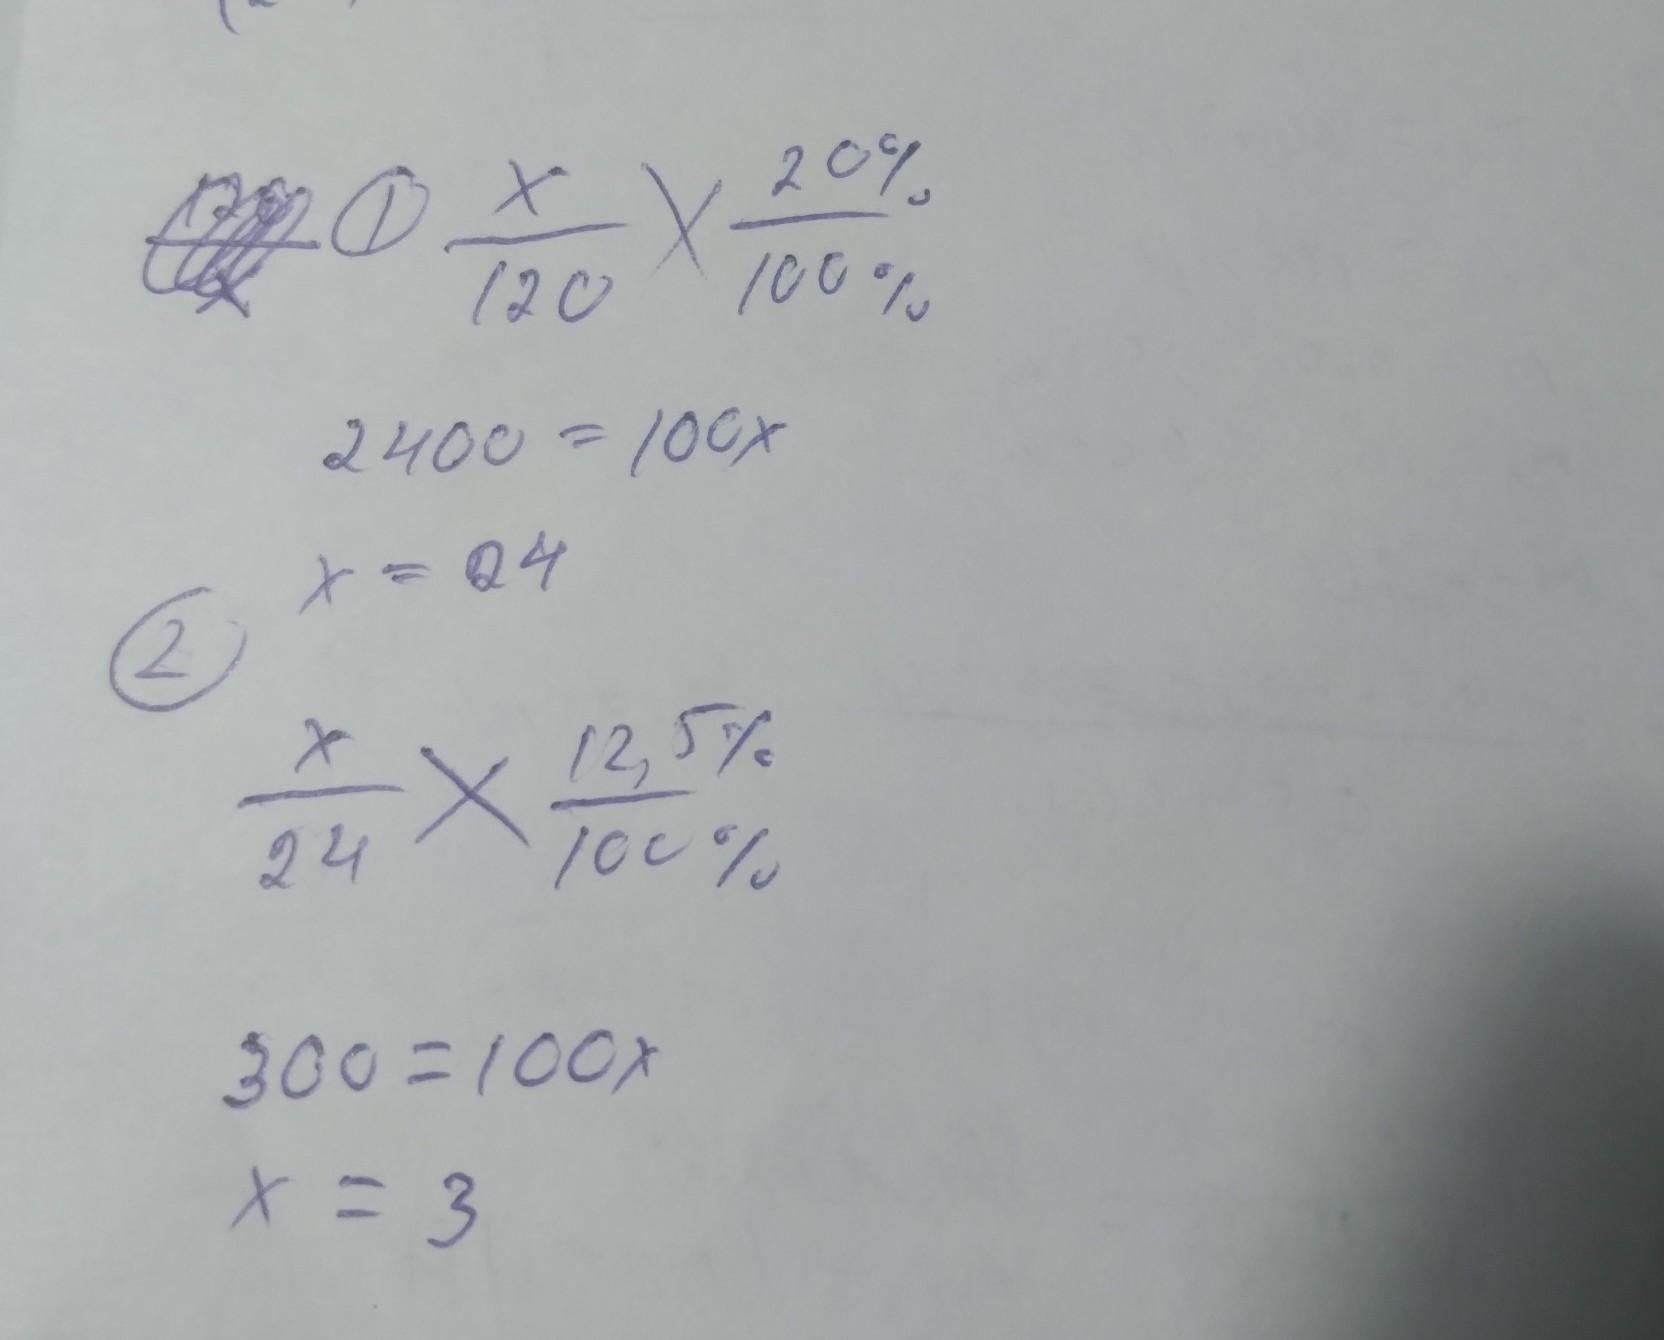 ① x/120 X 20%/100%
2400 = 100x
x = 24
②
x/24 X 12,5%/100%
300 = 100x
x = 3